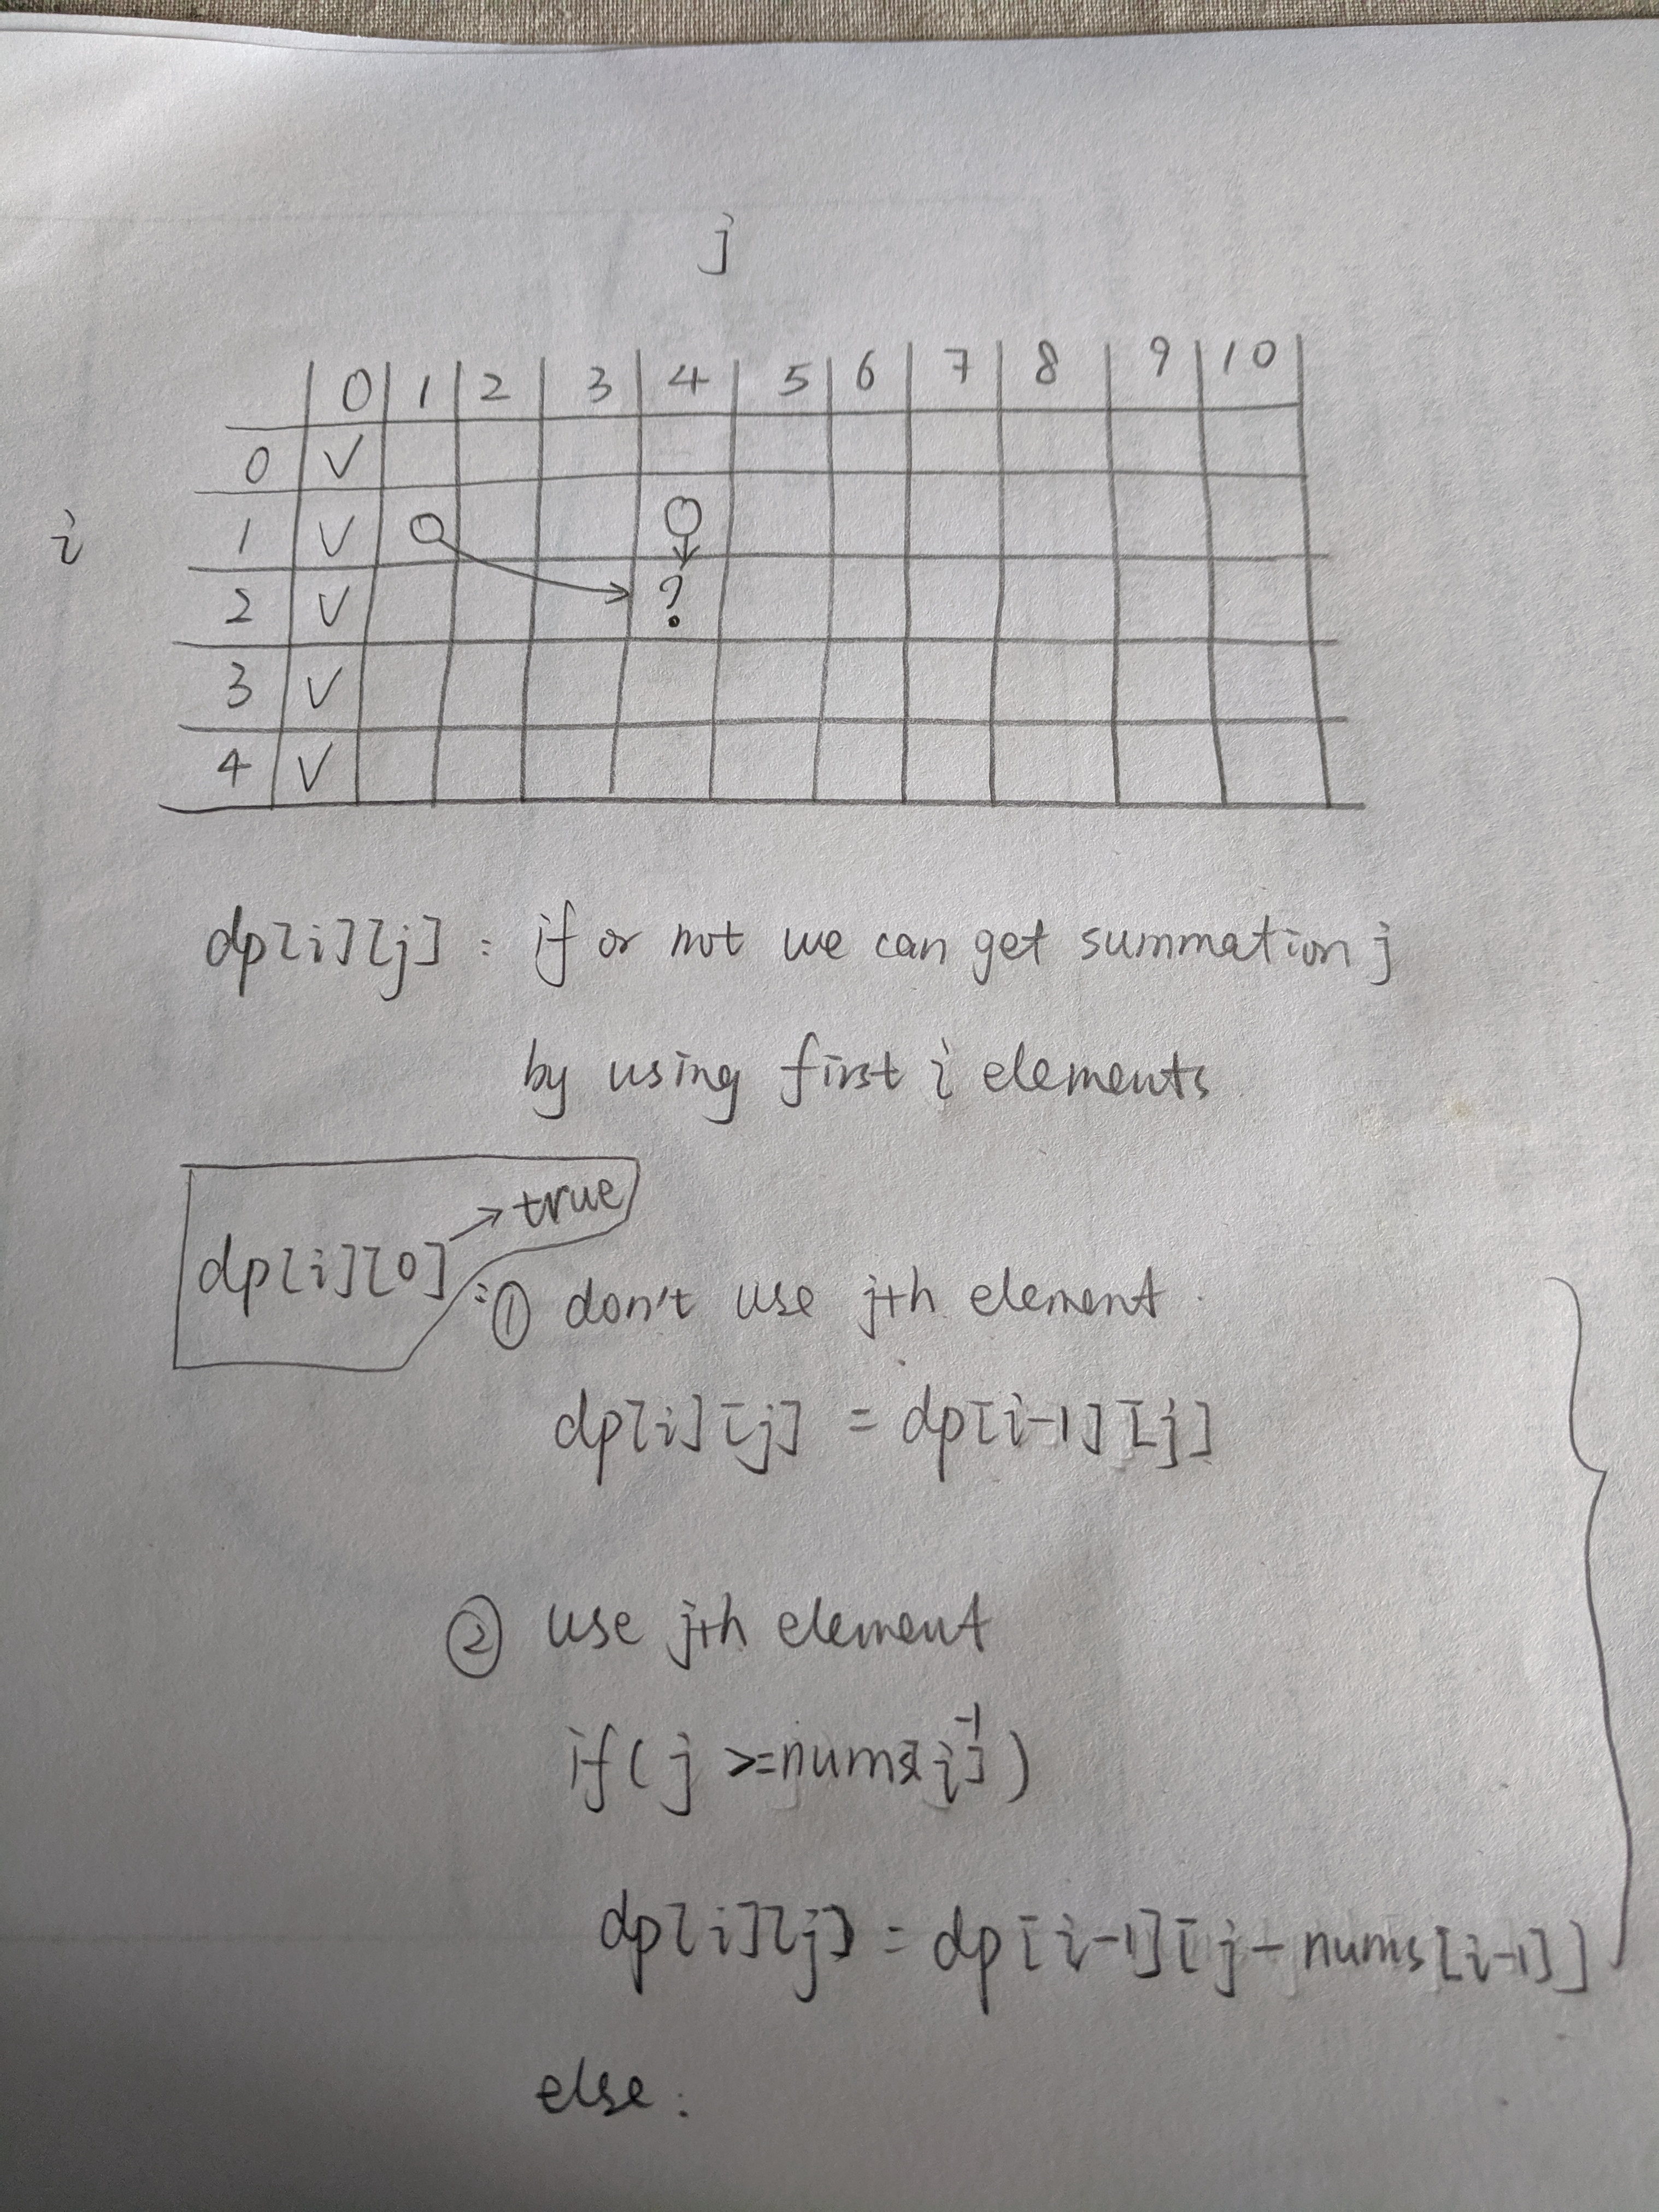 j
0 1 2 3 4 5 6 7 8 9 10
0 ✓
i 1 ✓
2 ✓ ?
3 ✓
4 ✓
dp[i][j] : if or not we can get summation j
by using first i elements
dp[i][0] → true
: ① don't use jth element.
dp[i][j] = dp[i-1][j]
② use jth element
if( j >= nums[i-1] )
dp[i][j] = dp[i-1][j - nums[i-1]]
else: